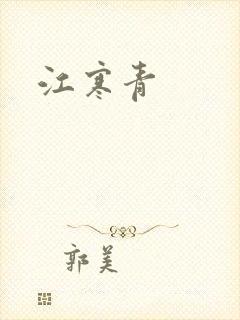 江寒青
郭美